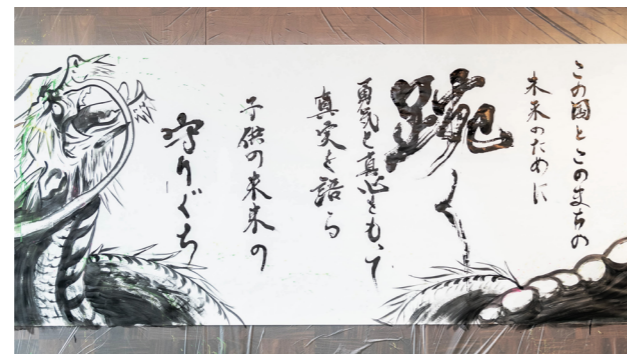 この国とこのまちの
未来のために
踠く
勇気と真心をもって
真実を語る
子供の未来の
守りぐち